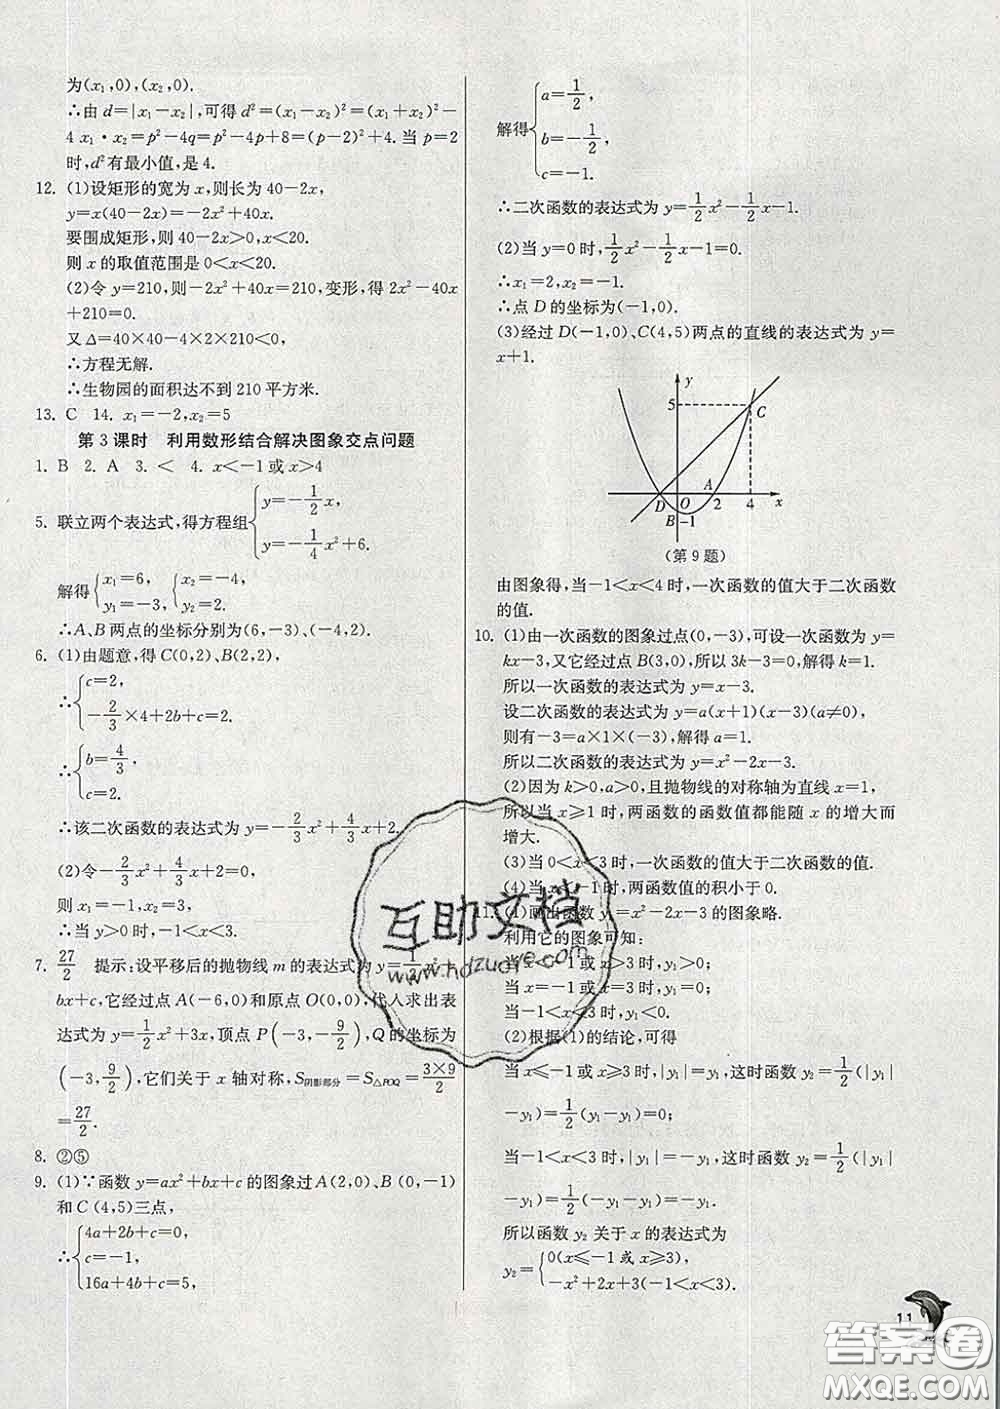 为(x₁,0),(x₂,0).
∴由 d=|x₁-x₂|,可得 d²=(x₁-x₂)²=(x₁+x₂)²-
4 x₁·x₂=p²-4q=p²-4p+8=(p-2)²+4. 当 p=2
时,d²有最小值,是 4.
12. (1)设矩形的宽为 x,则长为 40-2x,
y=x(40-2x)=-2x²+40x.
要围成矩形,则 40-2x>0,x<20.
则 x 的取值范围是 0<x<20.
(2)令 y=210,则-2x²+40x=210,变形,得 2x²-40x
+210=0.
又 Δ=40×40-4×2×210<0,
∴方程无解.
∴生物园的面积达不到 210 平方米.
13. C 14. x₁=-2,x₂=5
第 3 课时 利用数形结合解决图象交点问题
1. B 2. A 3. < 4. x<-1 或 x>4
5. 联立两个表达式,得方程组{y=-1/2 x,
y=-1/4 x²+6.
解得{x₁=6, {x₂=-4,
y₁=-3, y₂=2.
∴A、B 两点的坐标分别为(6,-3)、(-4,2).
6. (1)由题意,得 C(0,2)、B(2,2),
∴{c=2,
-2/3×4+2b+c=2.
∴{b=4/3,
c=2.
∴该二次函数的表达式为 y=-2/3 x²+4/3 x+2.
(2)令-2/3 x²+4/3 x+2=0,
则 x₁=-1,x₂=3.
∴当 y>0 时,-1<x<3.
7. 27/2 提示:设平移后的抛物线 m 的表达式为 y=1/2 x²+
bx+c,它经过点 A(-6,0)和原点 O(0,0),代人求出表
达式为 y=1/2 x²+3x,顶点 P(-3,-9/2),Q 的坐标为
(-3,9/2),它们关于 x 轴对称,S阴影部分=S△POQ=3×9/2
=27/2.
8. ②⑤
9. (1)∵函数 y=ax²+bx+c 的图象过 A(2,0)、B(0,-1)
和 C(4,5)三点,
∴{4a+2b+c=0,
c=-1,
16a+4b+c=5,
解得{a=1/2,
b=-1/2,
c=-1.
∴二次函数的表达式为 y=1/2 x²-1/2 x-1.
(2)当 y=0 时,1/2 x²-1/2 x-1=0.
∴x₁=2,x₂=-1.
∴点 D 的坐标为(-1,0).
(3)经过 D(-1,0)、C(4,5)两点的直线的表达式为 y=
x+1.
y
5
C
A
D O 2 4 x
B -1
(第 9 题)
由图象得,当-1<x<4 时,一次函数的值大于二次函数
的值.
10. (1)由一次函数的图象过点(0,-3),可设为 y=
kx-3,又它经过点 B(3,0),所以 3k-3=0,解得 k=1.
所以一次函数的表达式为 y=x-3.
设二次函数的表达式为 y=a(x+1)(x-3)(a≠0),
则有-3=a×1×(-3),解得 a=1.
所以二次函数的表达式为 y=x²-2x-3.
(2)因为 k>0,a>0,且抛物线的对称轴为直线 x=1,
所以当 x≥1 时,两函数的函数值都能随 x 的增大而
增大.
(3)当 0<x<3 时,一次函数的值大于二次函数的值.
(4)当 x<-1 时,两函数值的积小于 0.
11. (1)画出函数 y=x²-2x-3 的图象略.
利用它的图象可知:
当 x<-1 或 x>3 时,y₁>0;
当 x=-1 或 x=3 时,y₁=0;
当-1<x<3 时,y₁<0.
(2)根据(1)的结论,可得
当 x≤-1 或 x≥3 时,|y₁|=y₁,这时函数 y₂=1/2(|y₁|
-y₁)=1/2(y₁-y₁)=0;
当-1<x<3 时,|y₁|=-y₁,这时函数 y₂=1/2(|y₁|
-y₁)=1/2(-y₁-y₁)=-y₁.
所以函数 y₂ 关于 x 的表达式为
y₂={0(x≤-1 或 x≥3),
-x²+2x+3(-1<x<3).
11
互助文档
www.hdzuoye.com
答案圈
MXQE.COM